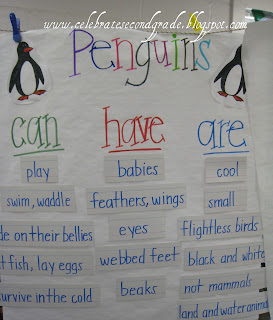 www.celebratesecondgrade.blogspot.com
Penguins
can have are
play babies cool
swim, waddle feathers, wings small
on their bellies eyes flightless birds
fish, lay eggs webbed feet black and white
survive in the cold beaks not mammals
land and water animals